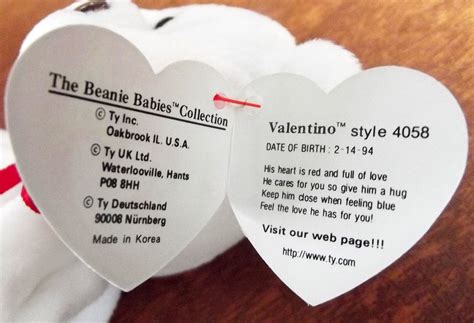 The Beanie Babies™Collection
© Ty Inc.
Oakbrook IL. U.S.A.
© Ty UK Ltd.
Waterlooville, Hants
P08 8HH
© Ty Deutschland
90008 Nürnberg
Made in Korea
Valentino™ style 4058
DATE OF BIRTH : 2-14-94
His heart is red and full of love
He cares for you so give him a hug
Keep him close when feeling blue
Feel the love he has for you!
Visit our web page!!!
http://www.ty.com